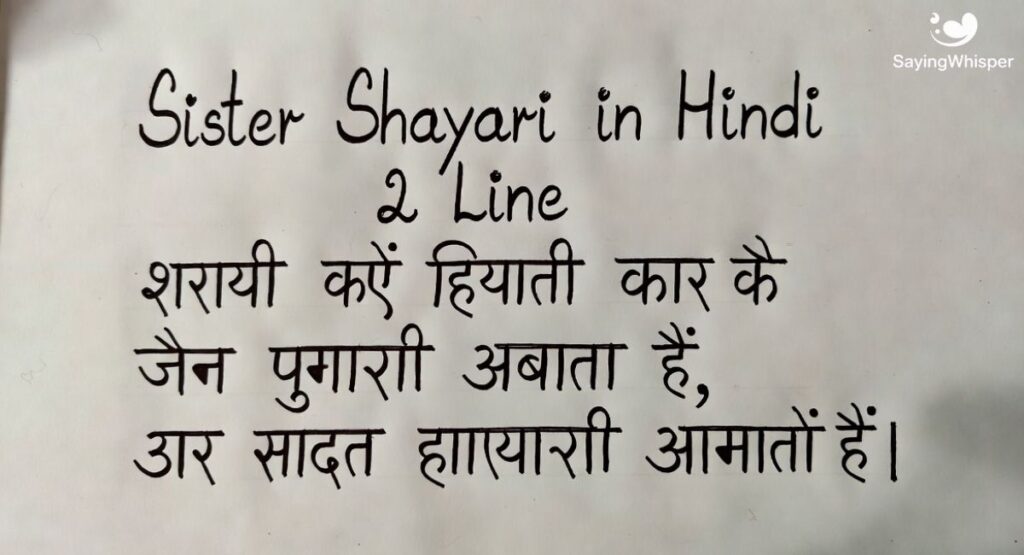 SayingWhisper
Sister Shayari in Hindi
2 Line
शरायी कएें हियाती कार कै
जैन पुगाराी अबाता हैं,
उार सादत हााएयाराी आमातों हैं।